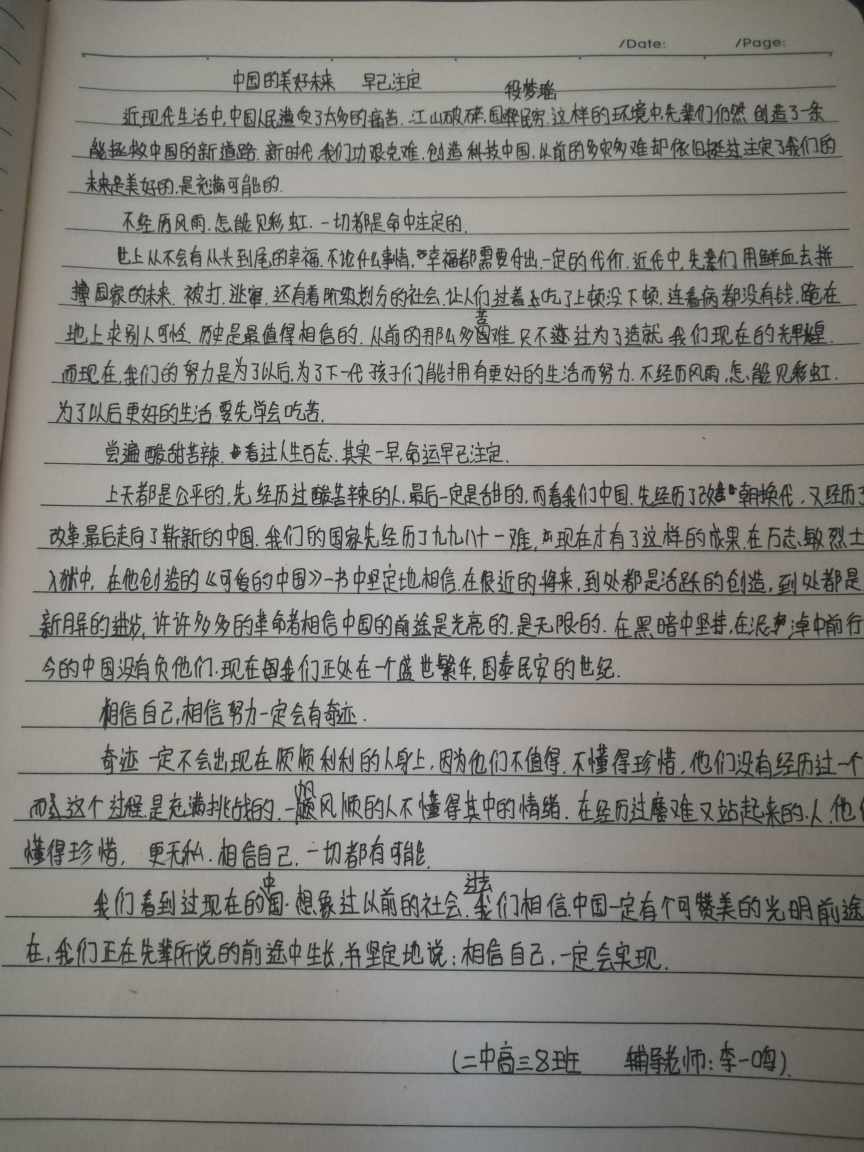 /Date: /Page:
中国的美好未来 早已注定
段梦瑶
近现代生活中,中国人民遭受了太多的痛苦.江山破碎,国弊民穷.这样的环境中,先辈们仍然创造了一条
能拯救中国的新道路.新时代,我们功艰克难.创造科技中国.从前的多灾多难却依旧挺过注定了我们的
未来是美好的.是充满可能的.
不经历风雨.怎能见彩虹.一切都是命中注定的.
世上从不会有从头到尾的幸福.不论什么事情,幸福都需要付出一定的代价.近代中,先辈们用鲜血去拼
搏国家的未来.被打.逃窜.还有着阶级划分的社会.让人们过着吃了上顿没下顿.连看病都没有钱.跪在
地上求别人可怜.历史是最值得相信的.从前的那么多苦难.只不过为了造就我们现在的光辉煌.
而现在,我们的努力是为了以后.为了下一代孩子们能拥有更好的生活而努力.不经历风雨,怎能见彩虹.
为了以后更好的生活要先学会吃苦.
尝遍酸甜苦辣.看过人生百态.其实一早,命运早已注定.
上天都是公平的.先经历过酸苦辣的人.最后一定是甜的.而看我们中国.先经历了改朝换代,又经历了
改革最后走向了崭新的中国.我们的国家先经历了九九八十一难,现在才有了这样的成果.在方志敏烈士
入狱中,在他创造的《可爱的中国》一书中坚定地相信.在很近的将来,到处都是活跃的创造,到处都是
新月异的进步,许许多多的革命者相信中国的前途是光亮的.是无限的.在黑暗中坚持,在泥淖中前行
今的中国没有负他们.现在我们正处在一个盛世繁华,国泰民安的世纪.
相信自己,相信努力一定会有奇迹.
奇迹一定不会出现在顺顺利利的人身上,因为他们不值得.不懂得珍惜.他们没有经历过一个
而这个过程是充满挑战的.一帆风顺的人不懂得其中的情绪.在经历过磨难又站起来的人.他们
懂得珍惜, 更无私.相信自己.一切都有可能.
我们看到过现在的中国.想象过以前的社会.过去我们相信.中国一定有个可赞美的光明前途
在,我们正在先辈所说的前途中生长,并坚定地说:相信自己.一定会实现.
(二中高三8班 辅导老师:李一鸣).